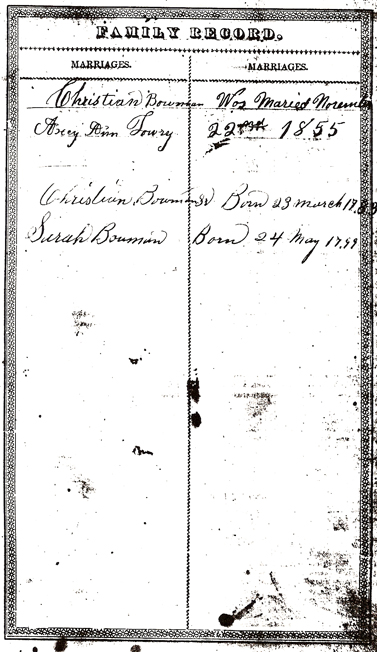 FAMILY RECORD.
MARRIAGES. MARRIAGES.
Christian Bowman Was Maried November
Ann Lowry 22 1855
Christian Bowman Sr Born 23 March
Sarah Bowman Born 24 May 1799